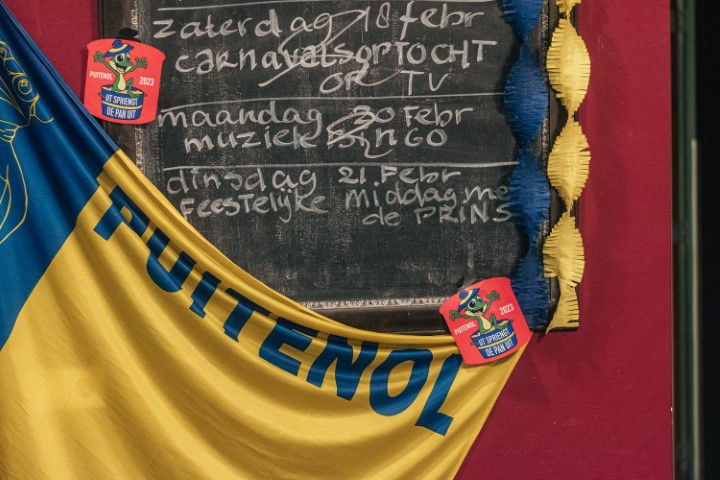 zaterdag 18 febr
carnavalsopTOCHT
OP TV
maandag 20 Febr
muziek BINGO
dinsdag 21.Febr
Feestelijke middag me
de PRINS
PUITENOL
2023
UT SPRIENGT
DE PAN UIT
PUITENOL
PUITENOL
2023
UT SPRIENGT
DE PAN UIT